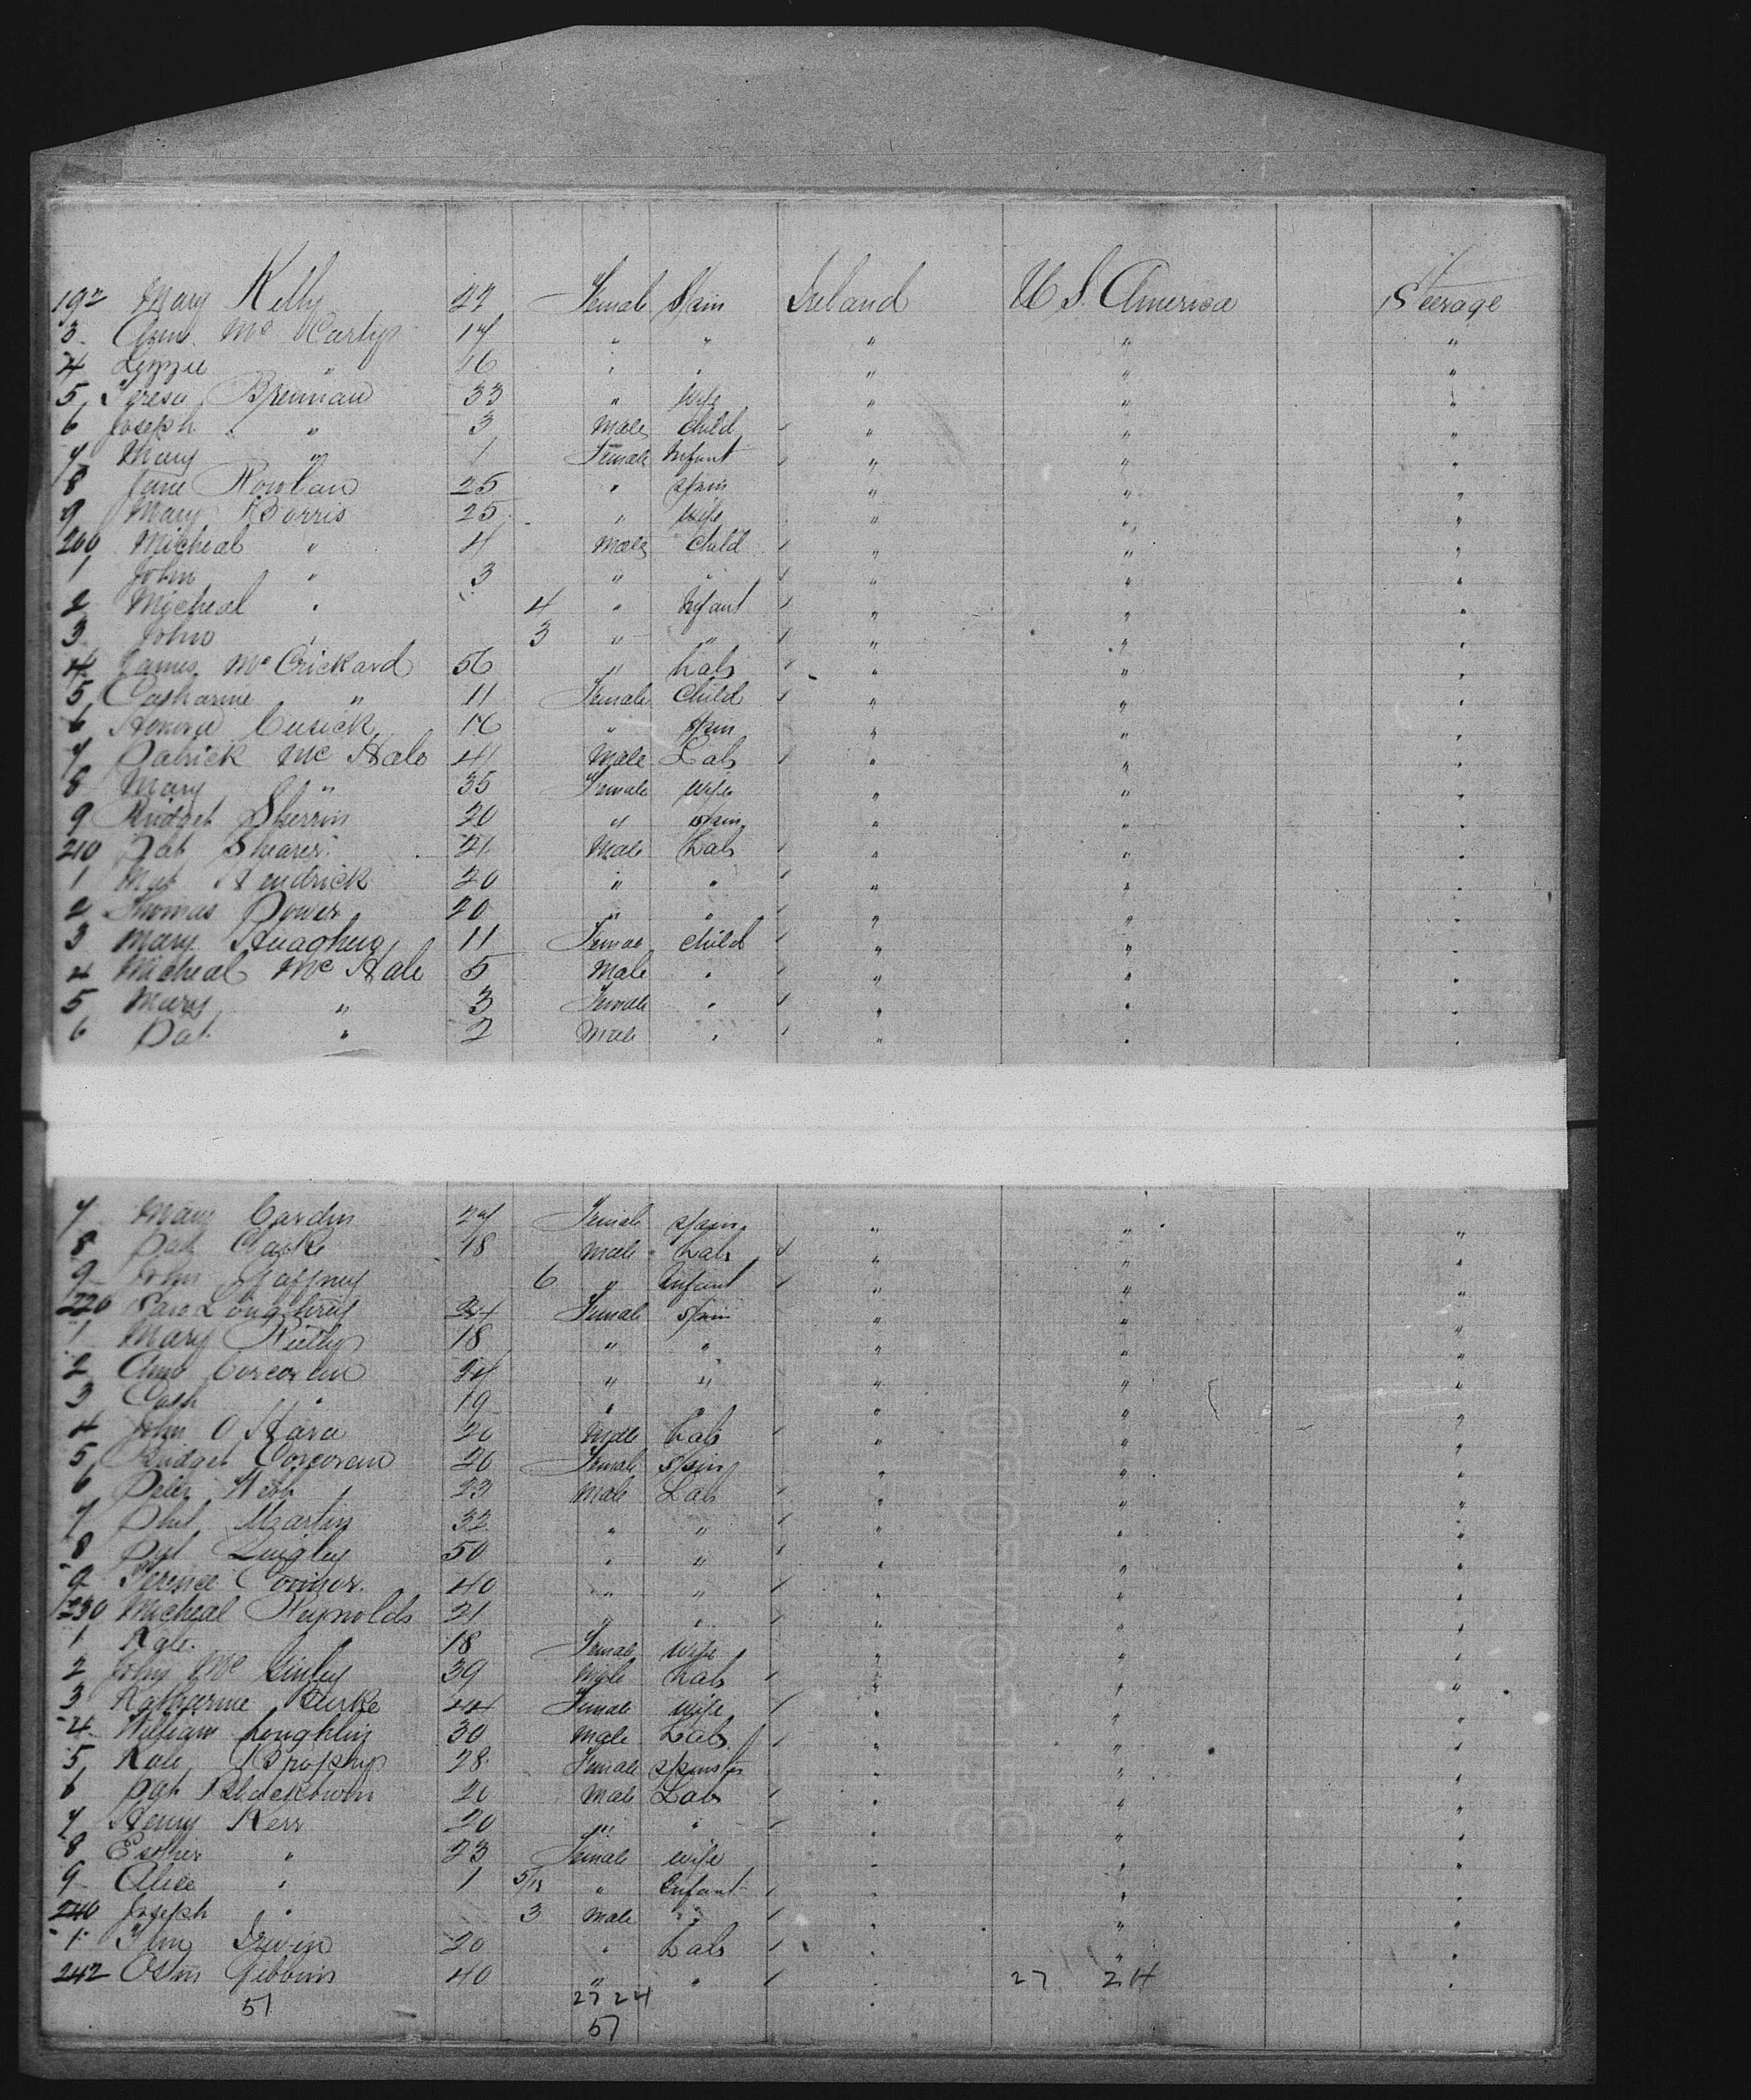 192 Mary Kelly 22 Female Spin Ireland U S. America Steerage
3 Ann Mc Carty 17 " " " " "
4 Lizzie " 16 " " " " "
5 Teresa Brennan 33 " wife " " "
6 Joseph " 3 Male Child " " "
7 Mary " 1 Female Infant " " "
8 Jane Rowlan 25 " Spin " " "
9 Mary Borris 25 " wife " " "
200 Micheal " 4 Male Child " " "
1 John " 3 " " " " "
2 Micheal " 4 " Infant " " "
3 John " 3 " " " " "
4 James Mc Crickard 56 " Lab " " "
5 Catharine " 11 Female Child " " "
6 Honora Cusick 16 " Spin " " "
7 Patrick Mc Hale 41 Male Lab " " "
8 Mary " 35 Female wife " " "
9 Bridget Sherrin 20 " Spin " " "
210 Pat Shearer 21 Male Lab " " "
1 Mat Hendrick 20 " " " " "
2 Thomas Power 20 " " " " "
3 Mary 11 Female Child " " "
4 Micheal Mc Hale 5 Male " " " "
5 Mary " 3 Female " " " "
6 Pat " 2 Male " " " "
7 Mary Cardin 27 Female Spin " " "
8 Pat Clarke 18 Male Lab " " "
9 John Gaffney 6 " Infant " " "
220 Female Spin " " "
1 Mary Reilly 18 " " " " "
2 Ann Corcoran 24 " " " " "
3 Cath " 19 " " " " "
4 John O Hara 20 Male Lab " " "
5 Bridget Corcoran 20 Female Spin " " "
6 Peter Webb 23 Male Lab " " "
7 Phil Martin 32 " " " " "
8 Pat Quigley 50 " " " " "
9 Terence Connor 40 " " " " "
230 Micheal Reynolds 21 " " " " "
1 Kate 18 Female wife " " "
2 John Mc Ginley 39 Male Lab " " "
3 Katharine Burke 44 Female wife " " "
4 William Loughlin 30 Male Lab " " "
5 Kate Brophy 28 Female Spinster " " "
6 Pat Blackbown 20 Male Lab " " "
7 Henry Kerr 20 " " " " "
8 Esther " 23 Female wife " " "
9 Alice " 1 5/12 " Infant " " "
240 Joseph " 3 Male " " " "
1 Irwin 20 " Lab " " "
242 Gibbins 40 " " " 27 24 "
51 27 24
51